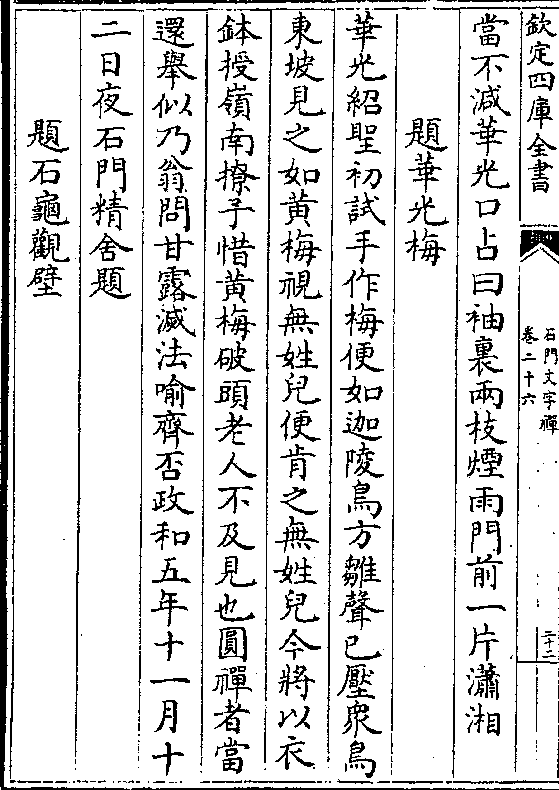 欽定四庫全書
石門文字禪
卷二十六
三十二
當不減華光口占曰袖裏兩枝煙雨門前一片瀟湘
題華光梅
華光紹聖初試手作梅便如迦陵鳥方雛聲已壓衆鳥
東坡見之如黃梅視無姓兒便肯之無姓兒今將以衣
鉢授嶺南獠子惜黃梅破頭老人不及見也圓禪者當
還舉似乃翁問甘露滅法喻齊否政和五年十一月十
二日夜石門精舍題
題石龜觀壁